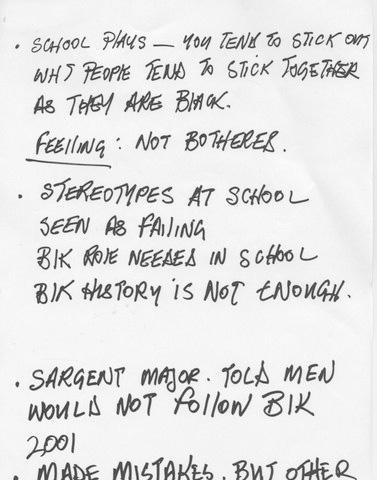 • SCHOOL PLAYS — YOU TEND TO STICK OUT
WHT PEOPLE TEND TO STICK TOGETHER
AS THEY ARE BLACK.
FEELING : NOT BOTHERED.
• STEREOTYPES AT SCHOOL
SEEN AS FAILING
BLK ROLE NEEDED IN SCHOOL
BLK HISTORY IS NOT ENOUGH.
• SARGENT MAJOR. TOLD MEN
WOULD NOT FOLLOW BLK
2001
• MADE MISTAKES. BUT OTHER